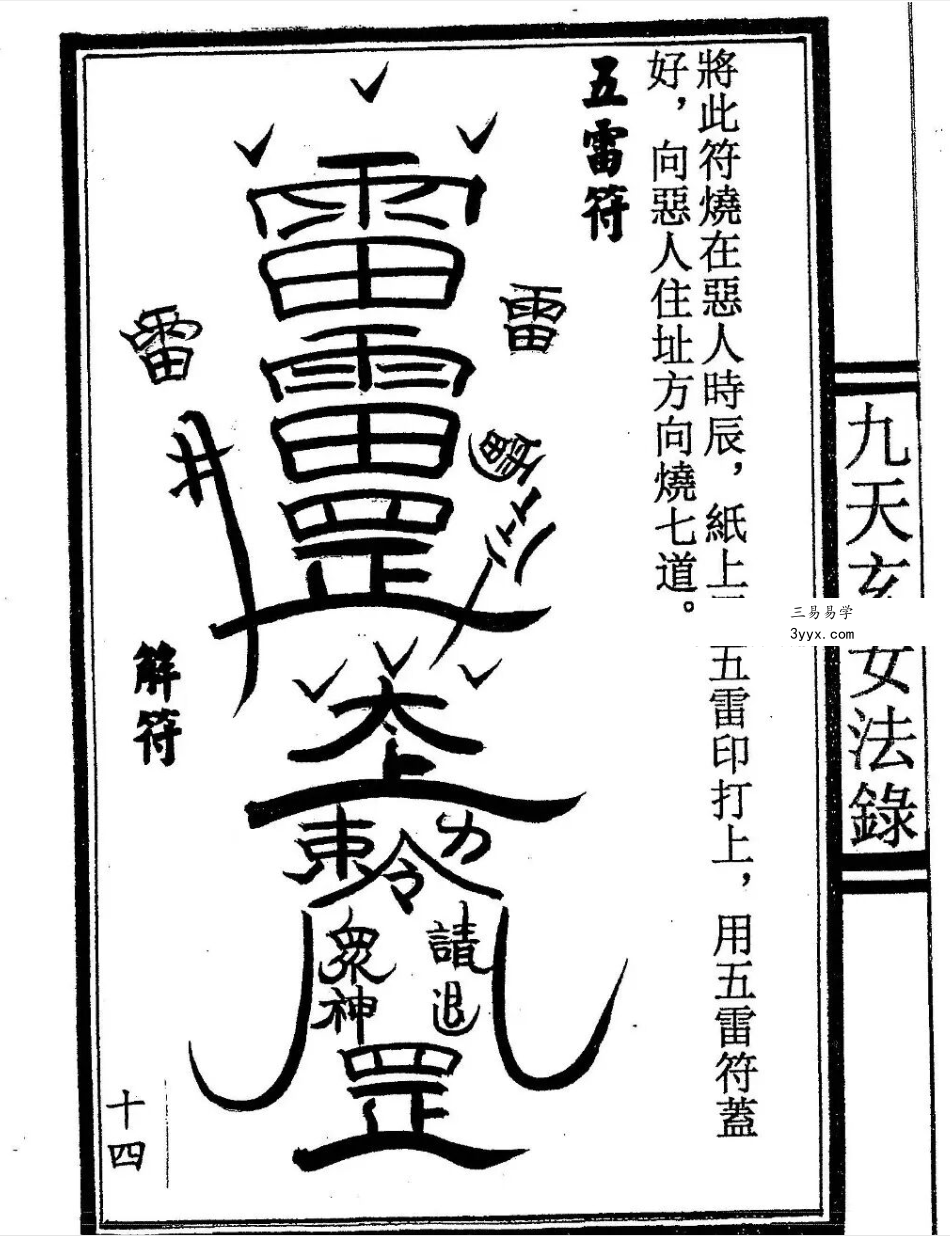 九天玄女法錄
三易易学
3yyx.com
將此符燒在惡人時辰，紙上五雷印打上，用五雷符蓋
好，向惡人住址方向燒七道。
五雷符
雷
雷
雷
雷
雷
罡
井
太上
敕令
請退
眾神
罡
解符
十四